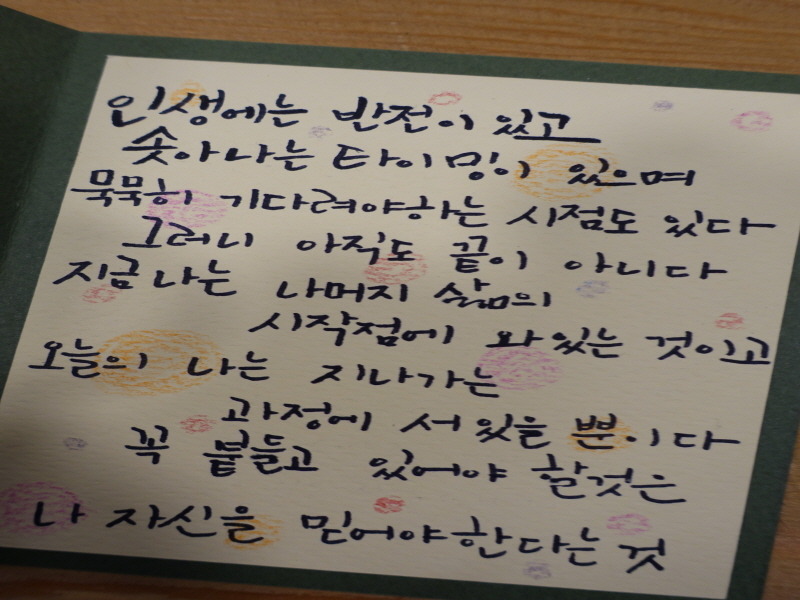 인생에는 반전이 있고
솟아나는 타이밍이 있으며
묵묵히 기다려야하는 시점도 있다
그러니 아직도 끝이 아니다
지금 나는 나머지 삶의
시작점에 와있는 것이고
오늘의 나는 지나가는
과정에 서 있을 뿐이다
꼭 붙들고 있어야 할것은
나 자신을 믿어야한다는 것